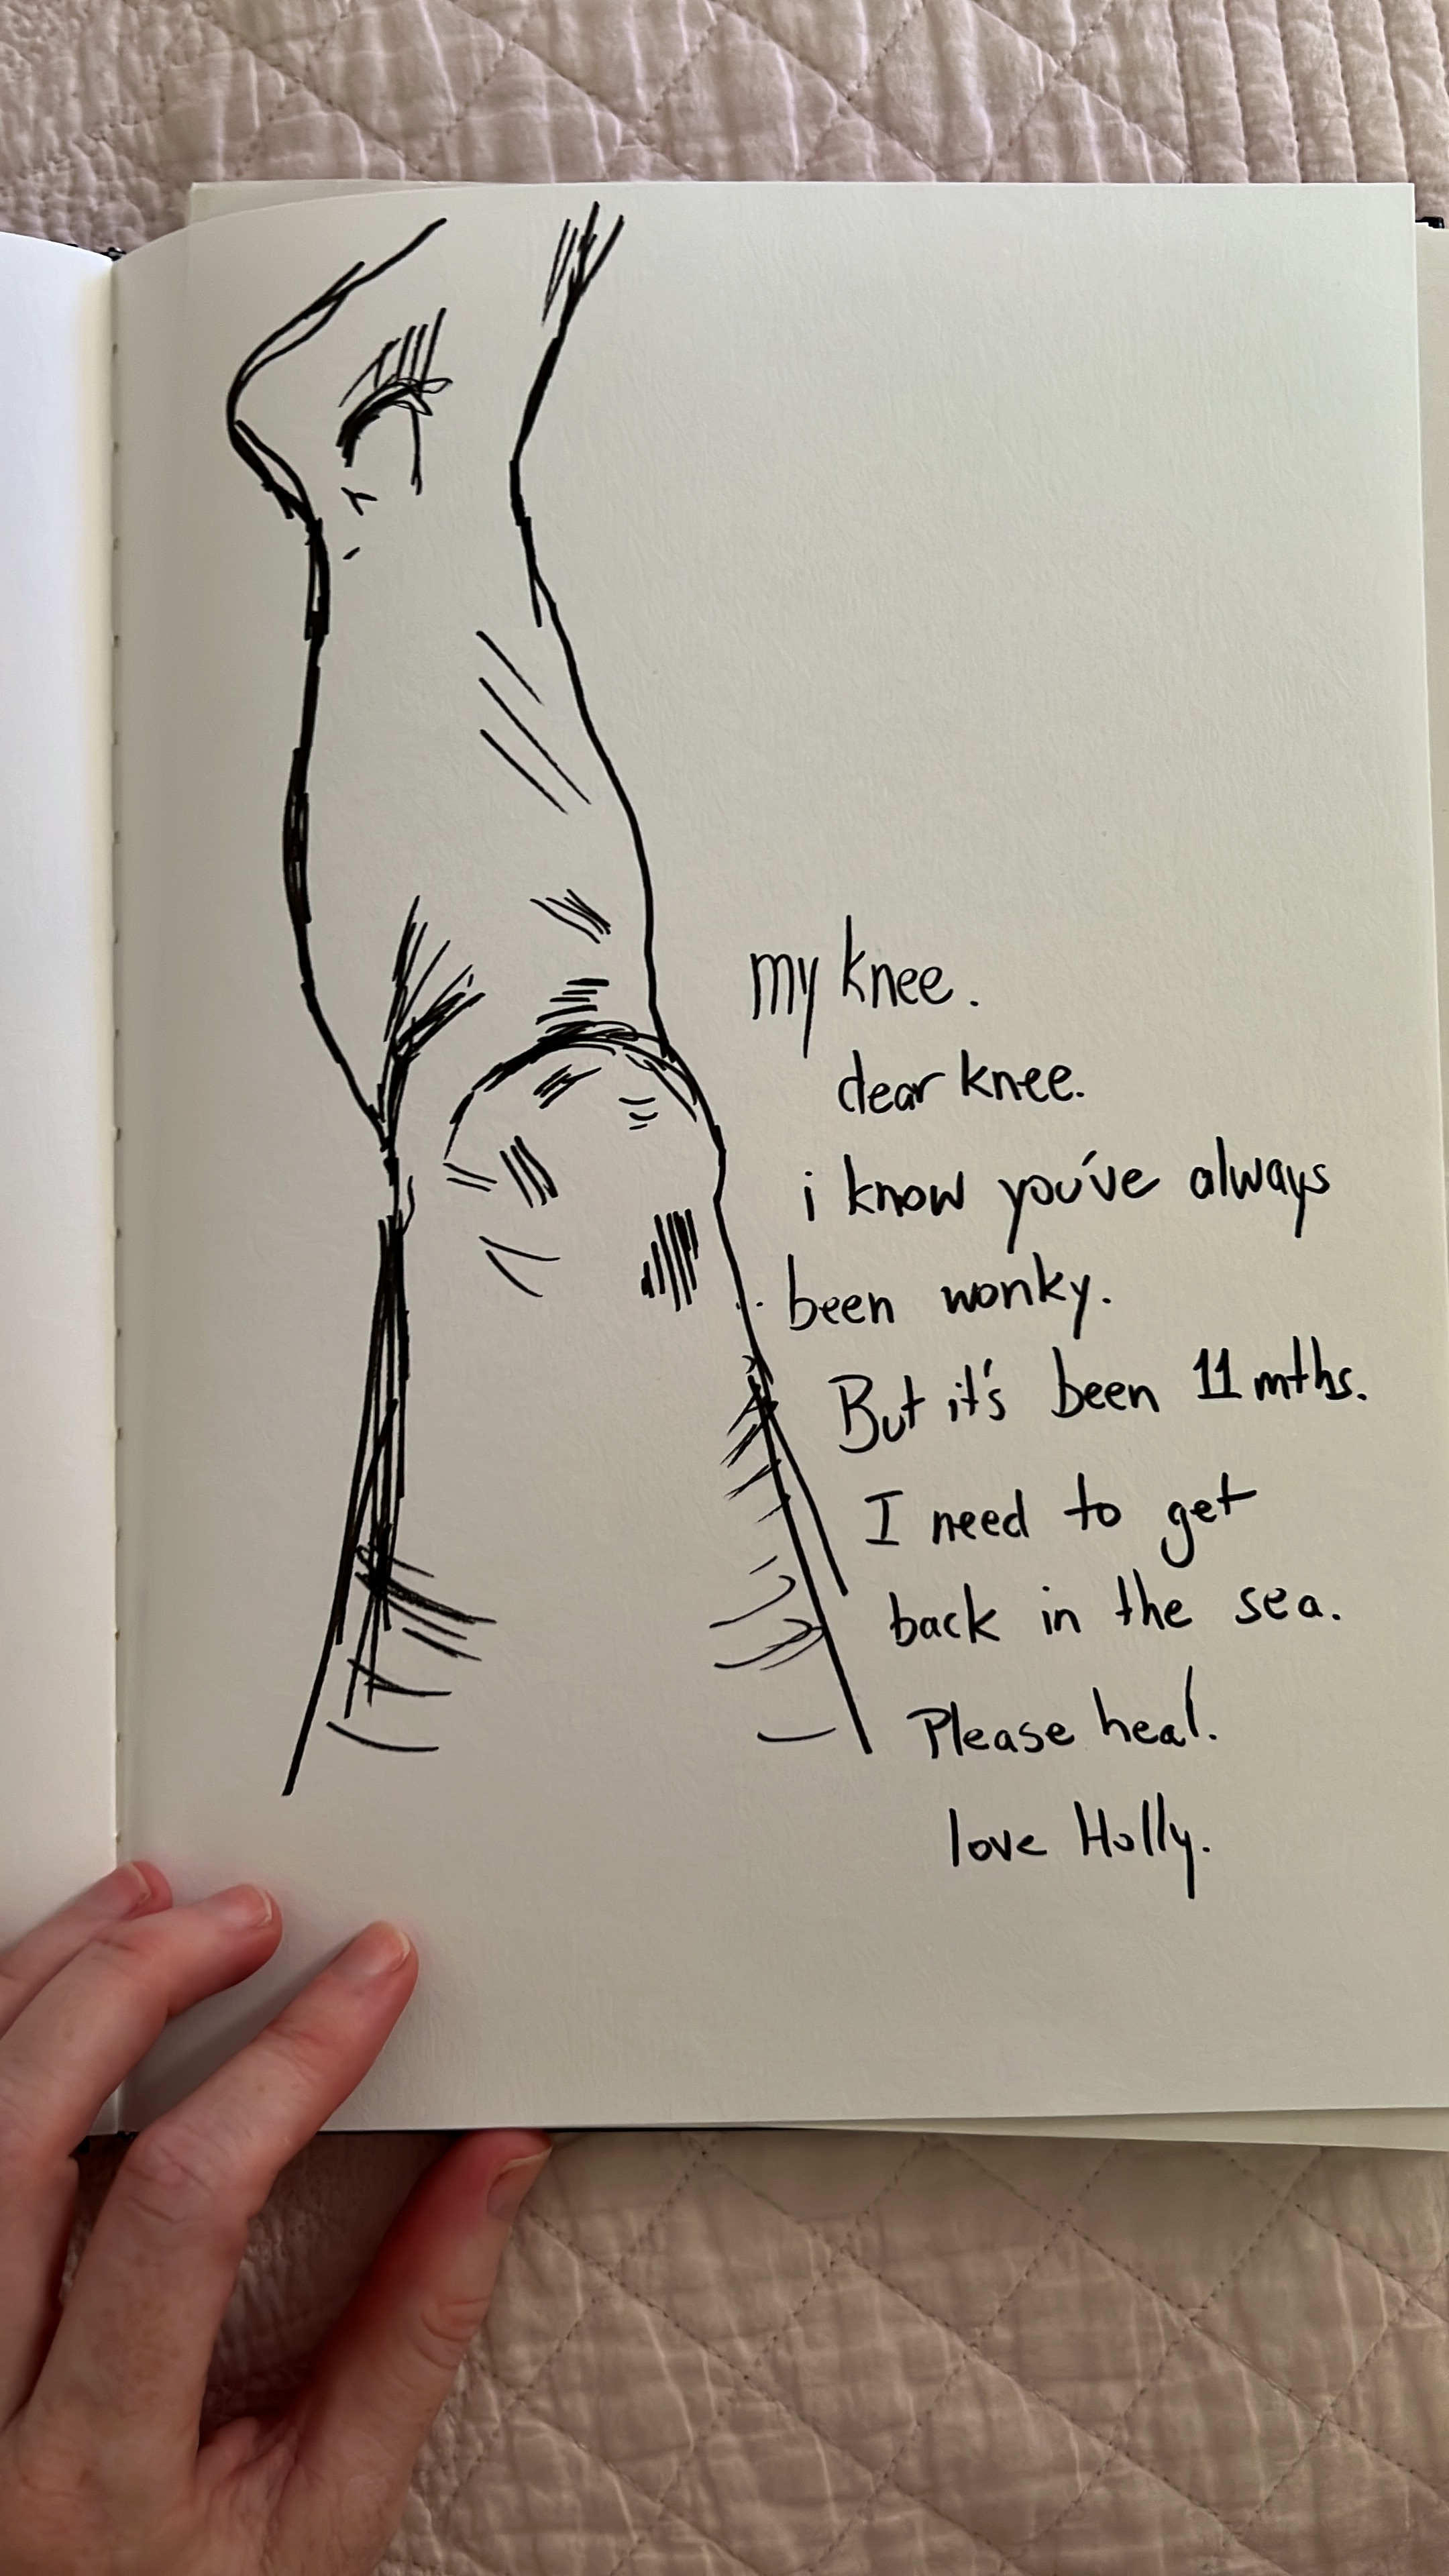 my knee.
dear knee.
i know you've always
been wonky.
But it's been 11 mths.
I need to get
back in the sea.
Please heal.
love Holly.